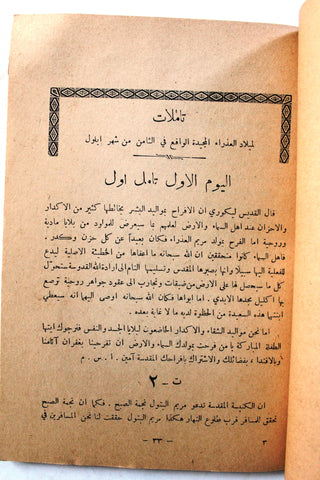 تاملات
لميلاد العذراء المجيدة الواقع في الثامن من شهر ايلول
اليوم الاول تامل اول
قال القديس ليكوري ان الافراح بمواليد البشر يخالطها كثير من الاكدار
والاحزان عند اهل السماء والارض لعلمهم بما سيعرض للمولود من بلايا مادية
وروحية اما الفرح بمولد مريم العذراء فكان بعيداً عن كل حزن وكدر.
فاهل السماء كانوا متحققين ان الله سبحانه ما اعفاها من الخطيئة الاصلية ليدع
للفعلية اليها سبيلاً وانها بصبرها المقدس وتسليمها التام الى ارادة الله القدوسة ستحول
كل ما سيحصل لها على الارض من ضيقات وتجارب الى جواهر روحية ترصع
بها اكليل مجدها الابدي. اما ابواها فكان الله سبحانه اوصى اليهما انه سيعطي
ابنتهما هذه السعيدة من الحظوة لديه ما لا نهاية بعده.
اما نحن مواليد الشقاء والاكدار الخاضعون لبلايا الجسد والنفس فنرجوك ايتها
الطفلة المباركة يا من فرحت بمولدك السماء والارض ان تفرحينا بغفران آثامنا
وبالاقتداء بفضائلك والاشتراك بافراحك المقدسة آمين. ا. س. م
ت - ٢ -
ان الكنيسة المقدسة تدعو مريم البتول نجمة الصبح. فكما ان نجمة الصبح
تحقق للمسافر قرب طلوع النهار هكذا مريم البتول حققت لنا نحن المسافرين في
- ٣٣ -
٣